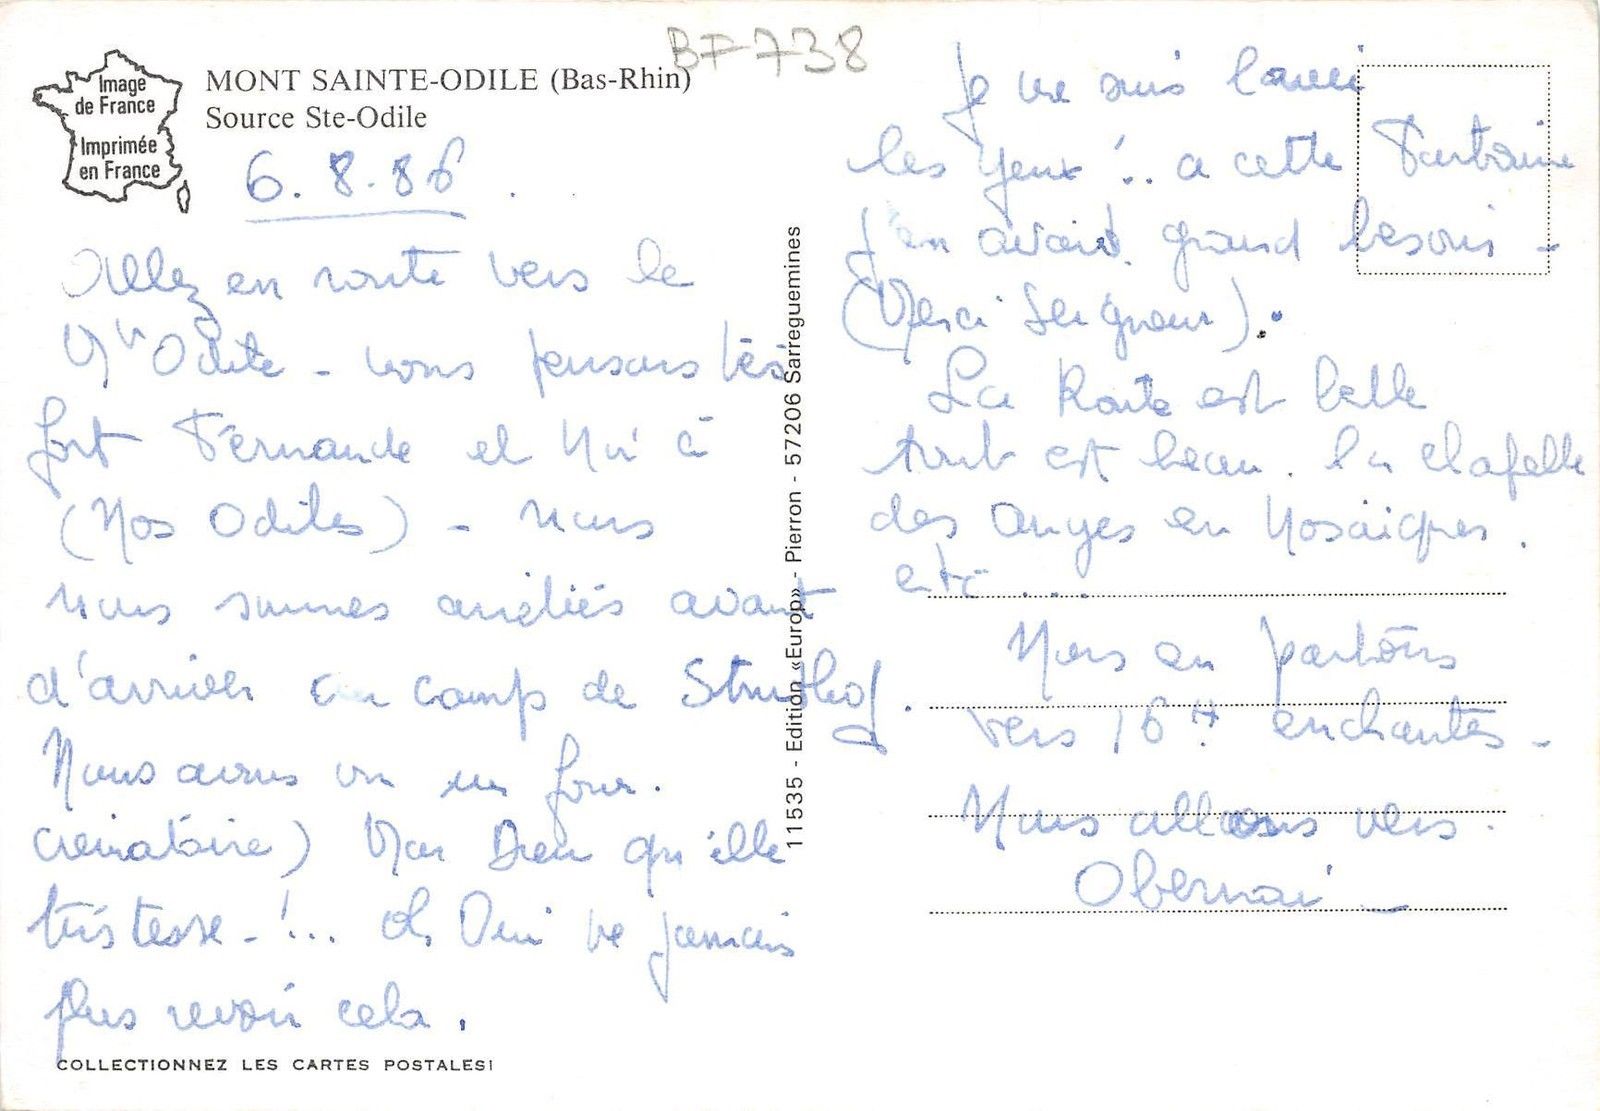 BF738
Image
de France
Imprimée
en France
MONT SAINTE-ODILE (Bas-Rhin)
Source Ste-Odile
6.8.86
Allez en route vers le
Mt Odile - nous pensons très
fort Fernande et
(Nos Odiles) - nous
nous sommes arrêtés avant
d'arriver au camp de Struthof.
Nous avons vu un four.
crématoire) Mon Dieu qu'elle
tristesse - !... oh Oui ne jamais
plus revoir cela.
COLLECTIONNEZ LES CARTES POSTALES!
11535 - Edition «Europ» - Pierron - 57206 Sarreguemines
Je me suis lavé
les yeux !.. a cette Fontaine
J'en avais grand besoin -
(Merci Seigneur).
La Route est belle
tout est beau. la chapelle
des anges en Mosaiques.
etc ...
Nous en partons
vers 16H enchantés -
Nous allons vers.
Obernai -